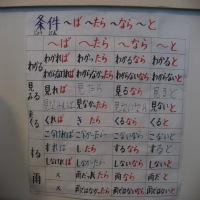 条件 ～ば ～たら ～なら ～と
～ば ～たら ～なら ～と
わかる わかれば わかったら わかるなら わかると
わからなければ わからなかったら わからないなら わからないと
見る みる 見れば 見たら 見るなら 見ると
見なければ 見なかったら 見ないなら 見ないと
くる くれば きたら くるなら くると
こなければ こなかったら こないなら こないと
する すれば したら するなら すると
しなければ しなかったら しないなら しないと
雨 × 雨だったら 雨なら 雨だと
× 雨じゃなかったら 雨じゃないなら 雨じゃないと